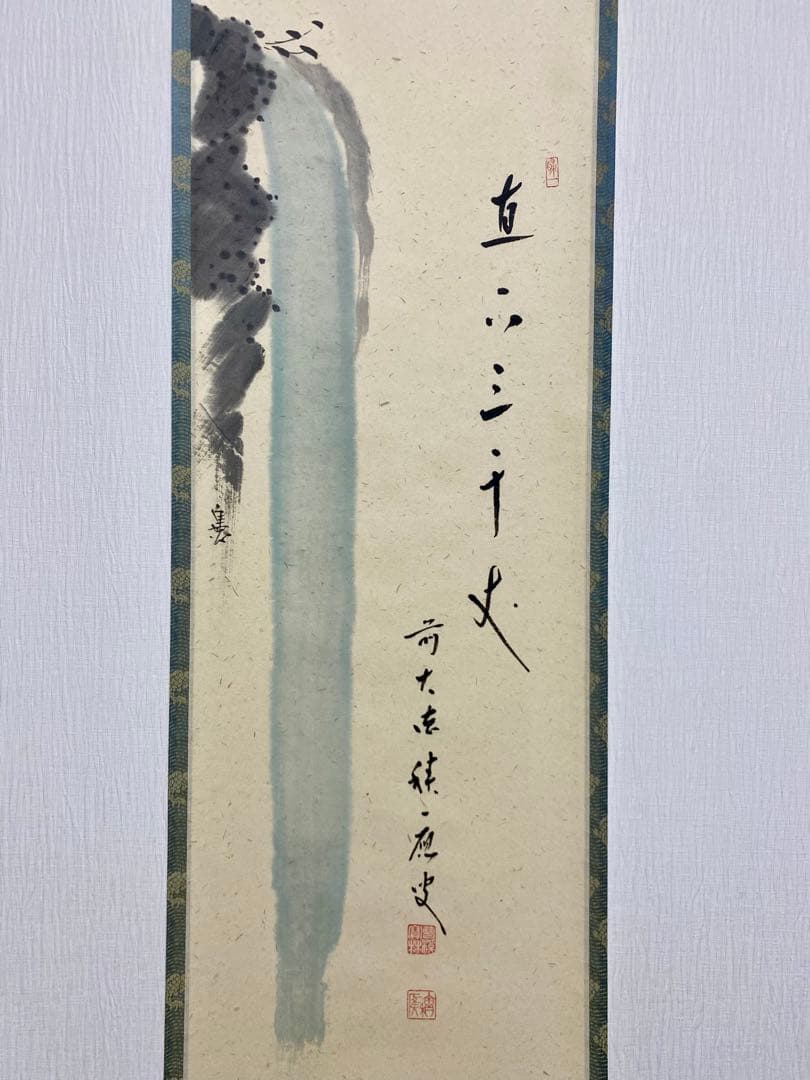 直下三千丈
前大徳積應叟